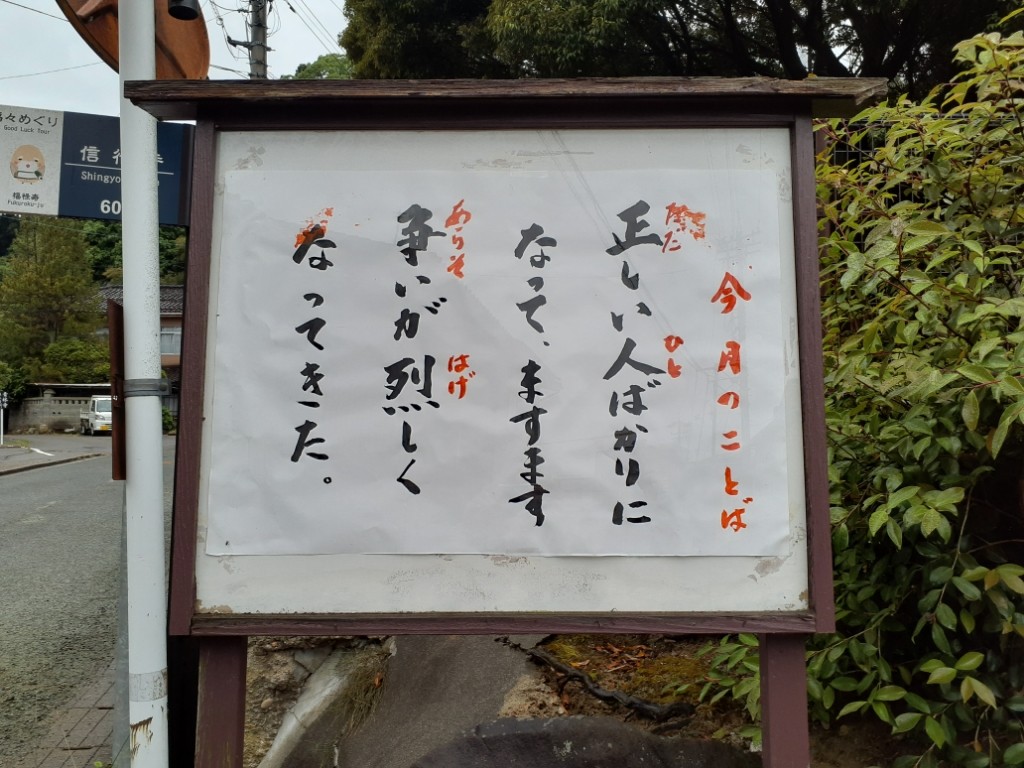 今月のことば
正しい人ばかりに
ひと
なって、ますます
争いが烈しく
あらそ
はげ
なってきた。
々めぐり
Good Luck Tour
福禄寿
Fukurokuju
信行寺
Shingyo
60